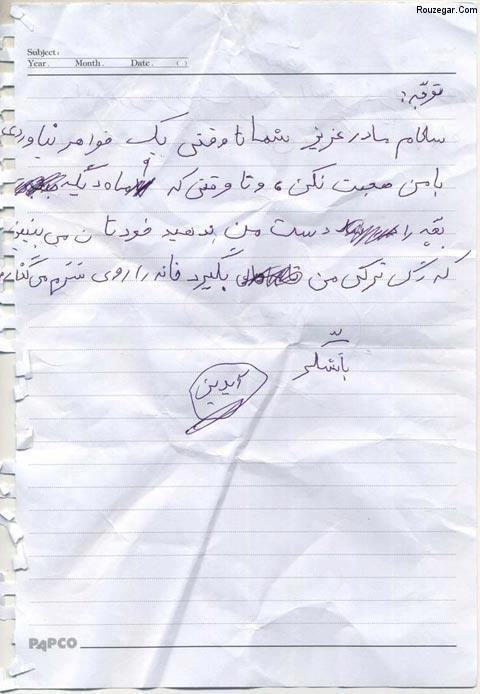 Rouzegar.Com
Subject:
Year. Month. Date. ( )
توجه:
سلام مادر عزیز شما تا وقتی یک خواهر نیاوردی
با من صحبت نکن، و تا وقتی که ۹ ماه دیگه
بچه را دست من بدهید خودتان می بینید
که رگ ترکی من بگیرد خانه را روی سَرَم می گذارم
باتّشکر
آیدین
PAPCO